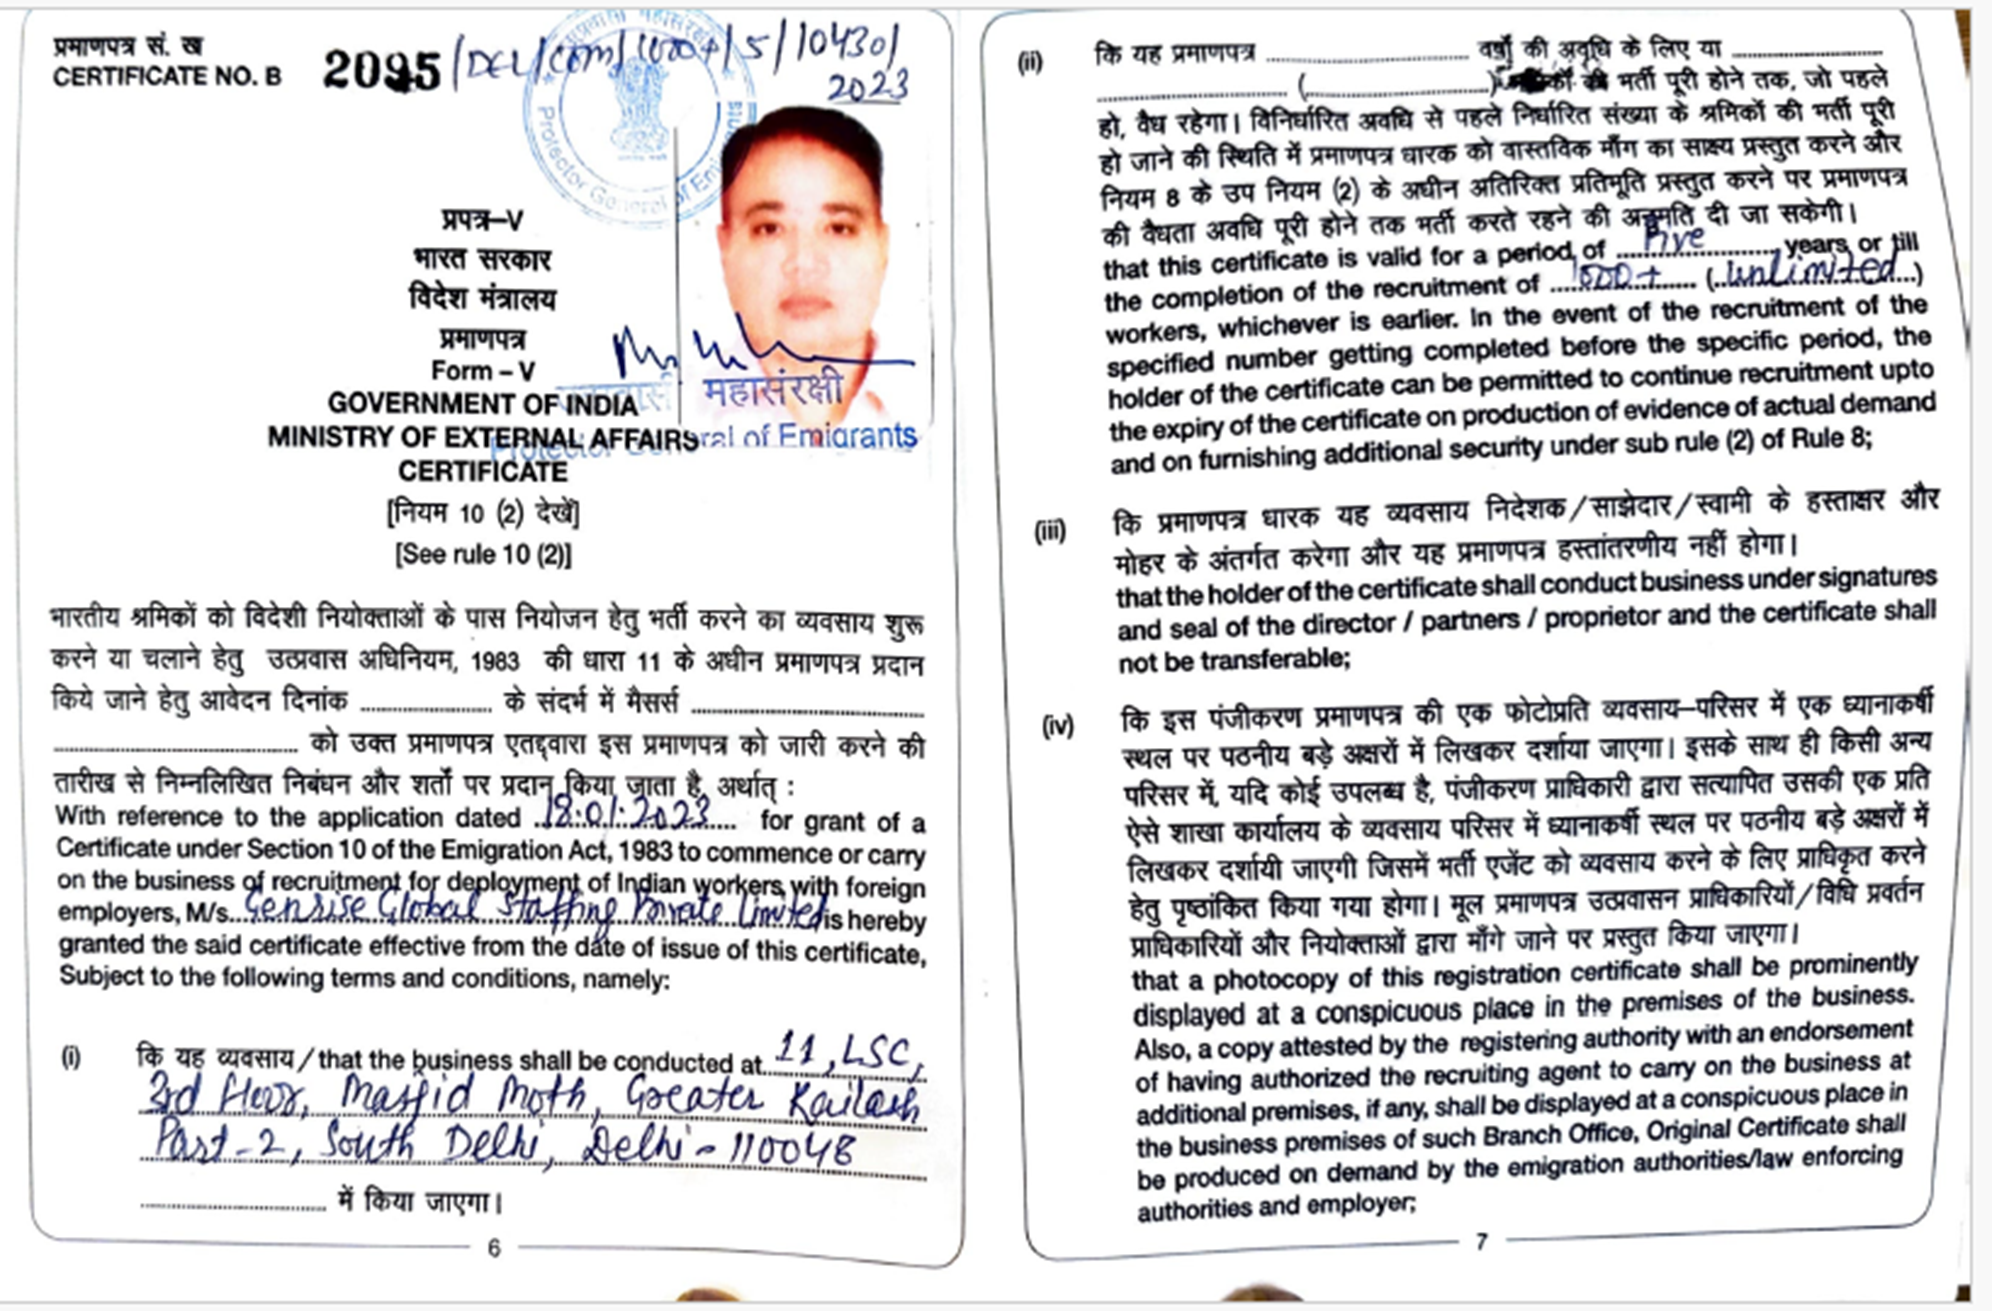 प्रमाणपत्र सं. ख
CERTIFICATE NO. B 2095/DEL/COM/1000+/5/10430/
2023
Protector General of Emi
प्रपत्र–V
भारत सरकार
विदेश मंत्रालय
प्रमाणपत्र
Form – V
महासंरक्षी
GOVERNMENT OF INDIA
MINISTRY OF EXTERNAL AFFAIRS
Protector General of Emigrants
CERTIFICATE
[नियम 10 (2) देखें]
[See rule 10 (2)]
भारतीय श्रमिकों को विदेशी नियोक्ताओं के पास नियोजन हेतु भर्ती करने का व्यवसाय शुरू
करने या चलाने हेतु उत्प्रवास अधिनियम, 1983 की धारा 11 के अधीन प्रमाणपत्र प्रदान
किये जाने हेतु आवेदन दिनांक ............ के संदर्भ में मैसर्स ............
............ को उक्त प्रमाणपत्र एतद्द्वारा इस प्रमाणपत्र को जारी करने की
तारीख से निम्नलिखित निबंधन और शर्तों पर प्रदान किया जाता है, अर्थात् :
With reference to the application dated 18.01.2023 for grant of a
Certificate under Section 10 of the Emigration Act, 1983 to commence or carry
on the business of recruitment for deployment of Indian workers with foreign
employers, M/s. Genrise Global Staffing Private Limited is hereby
granted the said certificate effective from the date of issue of this certificate,
Subject to the following terms and conditions, namely:
(i) कि यह व्यवसाय / that the business shall be conducted at 11, LSC,
3rd Floor, Masjid Moth, Greater Kailash
Part-2, South Delhi, Delhi - 110048
............ में किया जाएगा।
6
(ii) कि यह प्रमाणपत्र ............ वर्षों की अवधि के लिए या ............
............ (............) भर्ती पूरी होने तक, जो पहले
हो, वैध रहेगा। विनिर्धारित अवधि से पहले निर्धारित संख्या के श्रमिकों की भर्ती पूरी
हो जाने की स्थिति में प्रमाणपत्र धारक को वास्तविक माँग का साक्ष्य प्रस्तुत करने और
नियम 8 के उप नियम (2) के अधीन अतिरिक्त प्रतिभूति प्रस्तुत करने पर प्रमाणपत्र
की वैधता अवधि पूरी होने तक भर्ती करते रहने की अनुमति दी जा सकेगी।
that this certificate is valid for a period of Five years or till
the completion of the recruitment of 1000+ (unlimited)
workers, whichever is earlier. In the event of the recruitment of the
specified number getting completed before the specific period, the
holder of the certificate can be permitted to continue recruitment upto
the expiry of the certificate on production of evidence of actual demand
and on furnishing additional security under sub rule (2) of Rule 8;
(iii) कि प्रमाणपत्र धारक यह व्यवसाय निदेशक/साझेदार/स्वामी के हस्ताक्षर और
मोहर के अंतर्गत करेगा और यह प्रमाणपत्र हस्तांतरणीय नहीं होगा।
that the holder of the certificate shall conduct business under signatures
and seal of the director / partners / proprietor and the certificate shall
not be transferable;
(iv) कि इस पंजीकरण प्रमाणपत्र की एक फोटोप्रति व्यवसाय–परिसर में एक ध्यानाकर्षी
स्थल पर पठनीय बड़े अक्षरों में लिखकर दर्शाया जाएगा। इसके साथ ही किसी अन्य
परिसर में, यदि कोई उपलब्ध है, पंजीकरण प्राधिकारी द्वारा सत्यापित उसकी एक प्रति
ऐसे शाखा कार्यालय के व्यवसाय परिसर में ध्यानाकर्षी स्थल पर पठनीय बड़े अक्षरों में
लिखकर दर्शायी जाएगी जिसमें भर्ती एजेंट को व्यवसाय करने के लिए प्राधिकृत करने
हेतु पृष्ठांकित किया गया होगा। मूल प्रमाणपत्र उत्प्रवासन प्राधिकारियों/विधि प्रवर्तन
प्राधिकारियों और नियोक्ताओं द्वारा माँगे जाने पर प्रस्तुत किया जाएगा।
that a photocopy of this registration certificate shall be prominently
displayed at a conspicuous place in the premises of the business.
Also, a copy attested by the registering authority with an endorsement
of having authorized the recruiting agent to carry on the business at
additional premises, if any, shall be displayed at a conspicuous place in
the business premises of such Branch Office, Original Certificate shall
be produced on demand by the emigration authorities/law enforcing
authorities and employer;
7